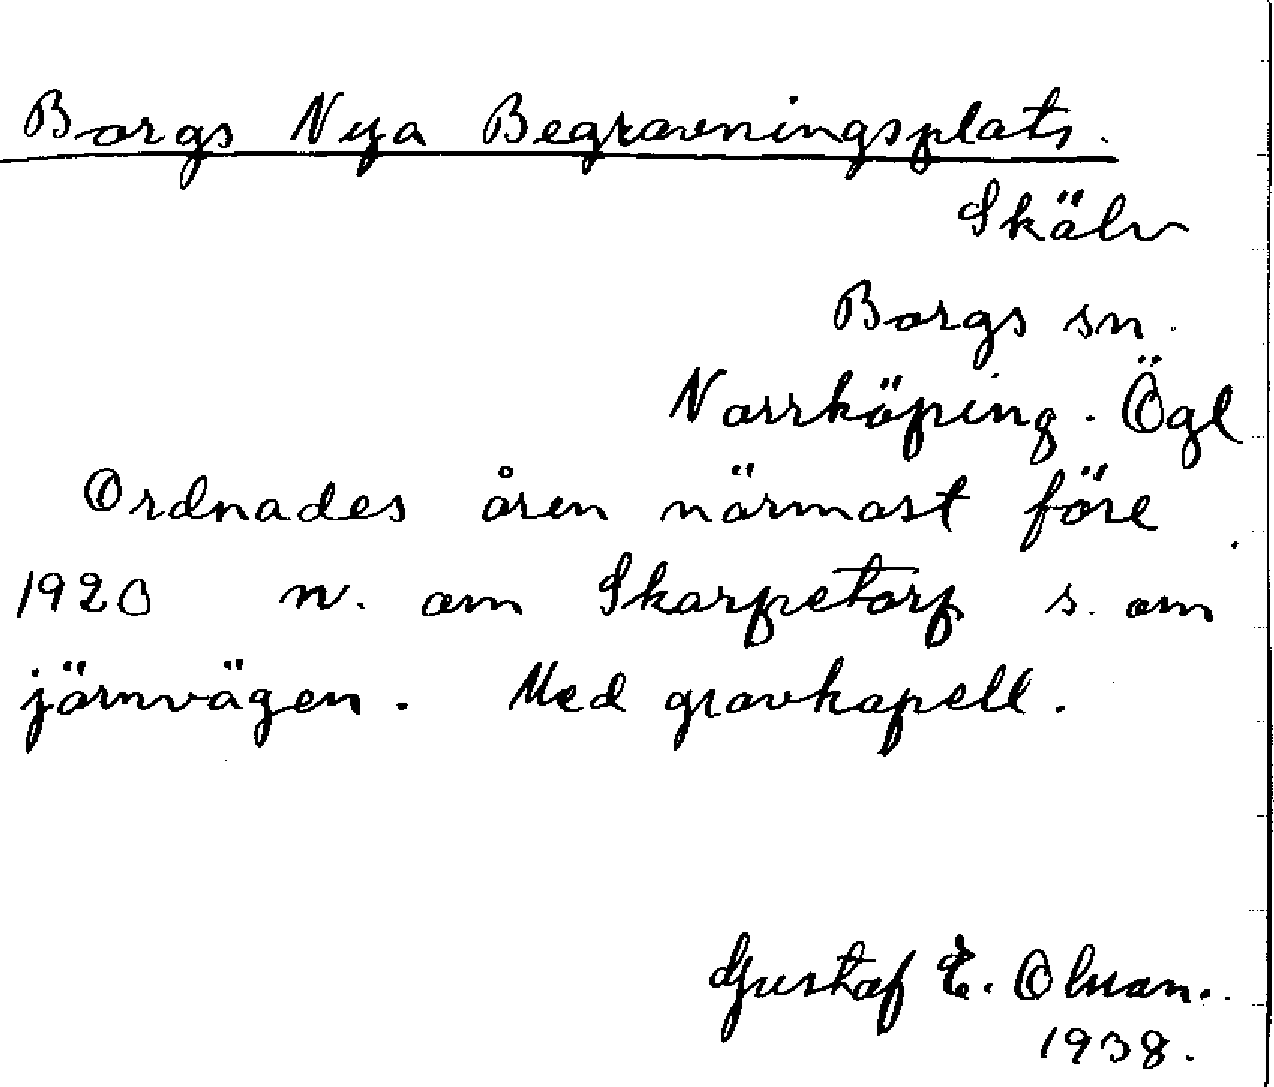 Borgs Nya Begravningsplats.
Skälv
Borgs sn.
Norrköping. Ögl
Ordnades åren närmast före
1920 n. om Skarpetorp s. om
järnvägen. Med gravkapell.
Gustaf E. Olsson.
1938.